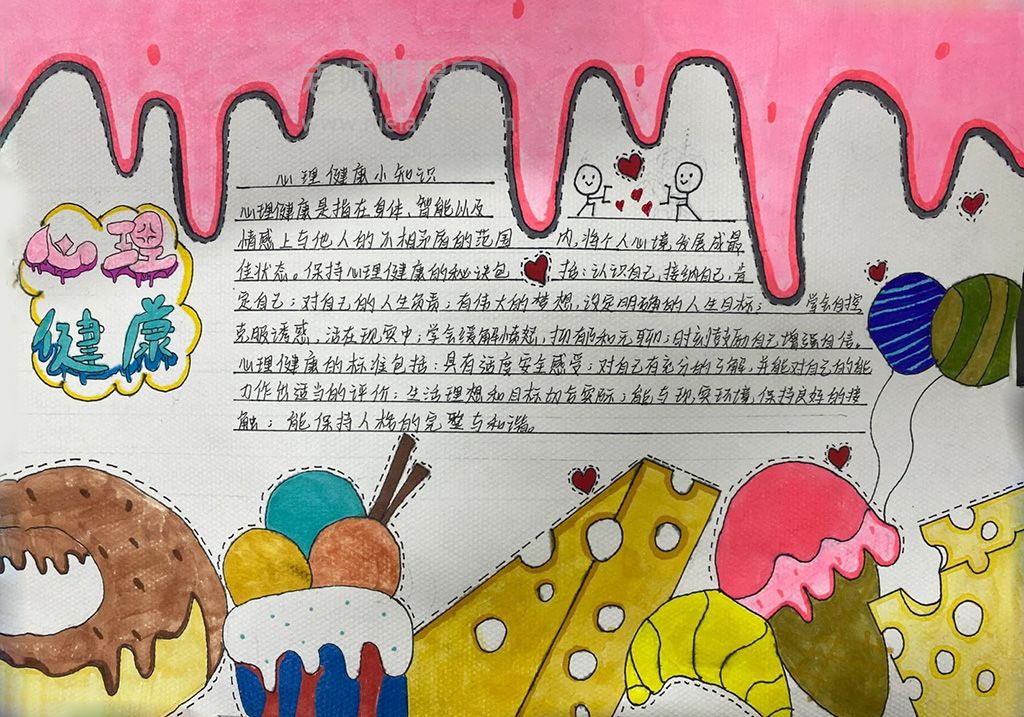 心理
健康
心理健康小知识
心理健康是指在身体、智能以及
情感上与他人的不相矛盾的范围内,将个人心境发展成最
佳状态。保持心理健康的秘诀包括:认识自己,接纳自己,肯
定自己;对自己的人生负责;有伟大的梦想,设定明确的人生目标;学会自控
克服诱惑,活在现实中;学会缓解愤怒,抑郁和无聊;时刻鼓励自己增强自信。
心理健康的标准包括:具有适度安全感受;对自己有充分的了解,并能对自己的能
力作出适当的评价;生活理想和目标切合实际;能与现实环境,保持良好的接
触;能保持人格的完整与和谐。